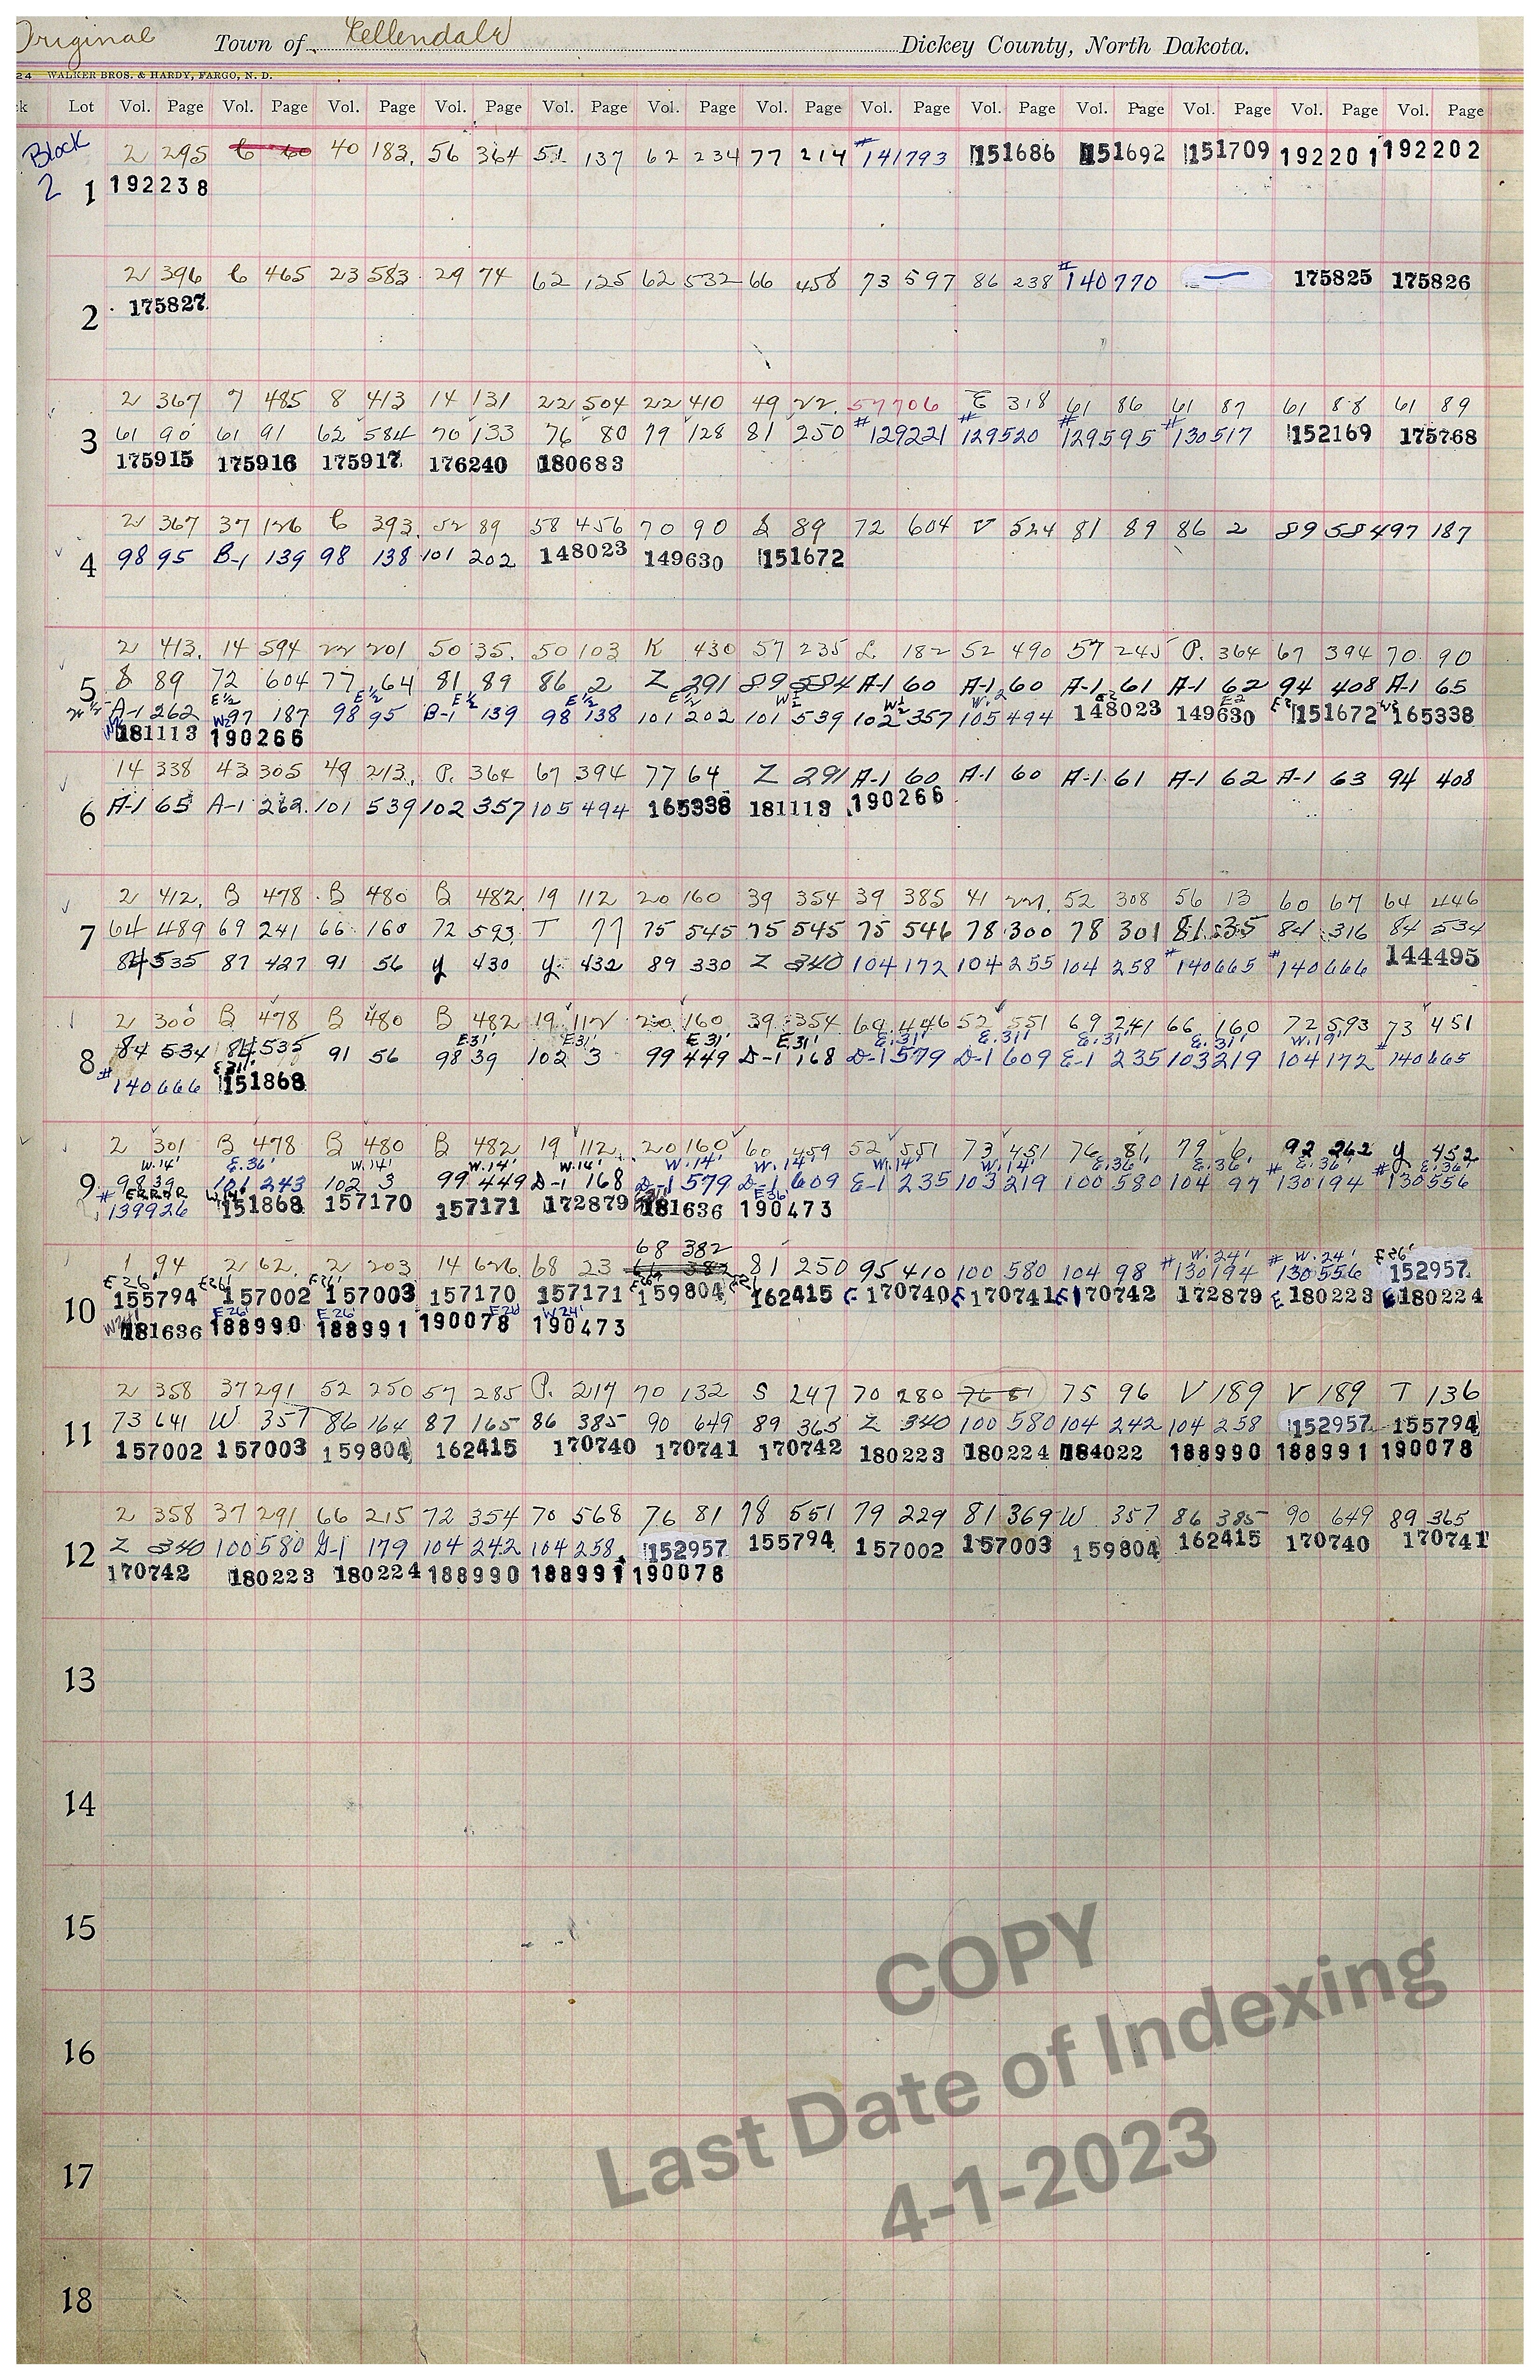 Original Town of Ellendale Dickey County, North Dakota.
24 WALKER BROS. & HARDY, FARGO, N. D.
k Lot Vol. Page Vol. Page Vol. Page Vol. Page Vol. Page Vol. Page Vol. Page Vol. Page Vol. Page Vol. Page Vol. Page Vol. Page Vol. Page
Block 2 295 C 60 40 183. 56 364 51 137 62 234 77 214 #141793 151686 151692 151709 192201 192202
2 1 192238
2 396 C 465 23 583 29 74 62 125 62 532 66 458 73 597 86 238 #140770 — 175825 175826
2 175827
2 367 7 485 8 413 14 131 22 504 22 410 49 22. 57 706 E 318 61 86 61 87 61 88 61 89
3 61 90 61 91 62 584 70 133 76 80 79 128 81 250 #129221 #129520 #129595 #130517 152169 175768
175915 175916 175917 176240 180683
2 367 37 126 C 393. 52 89 58 456 70 90 S 89 72 604 V 524 81 89 86 2 89 584 97 187
4 98 95 B-1 139 98 138 101 202 148023 149630 151672
2 413. 14 594 22 201 50 35. 50 103 K 430 57 235 L 182 52 490 57 245 P. 364 67 394 70 90
5 8 89 72 604 77 64 81 89 86 2 Z 291 89 584 A-1 60 A-1 60 A-1 61 A-1 62 94 408 A-1 65
E½ E½ E½ E½ E½ W½ W½ W½ E2 E2
A-1 262 97 187 98 95 B-1 139 98 138 101 202 101 539 102 357 105 494 148023 149630 151672 165338
181113 190266
14 338 43 305 49 213. P. 364 67 394 77 64 Z 291 A-1 60 A-1 60 A-1 61 A-1 62 A-1 63 94 408
6 A-1 65 A-1 262. 101 539 102 357 105 494 165338 181113 190266
2 412. B 478 B 480 B 482 19 112 20 160 39 354 39 385 41 221. 52 308 56 13 60 67 64 446
7 64 489 69 241 66 160 72 593 T 77 75 545 75 545 75 546 78 300 78 301 81 535 84 316 84 534
84 535 87 427 91 56 y 430 y 432 89 330 Z 340 104 172 104 255 104 258 #140665 #140666 144495
2 300 B 478 B 480 B 482 19 112 20 160 39 354 64 446 52 551 69 241 66 160 72 593 73 451
E.31' E31' E 31' E.31' E.31' E.31' E.31' E.31' W.19' #
8 84 534 84 535 91 56 98 39 102 3 99 449 D-1 168 D-1 579 D-1 609 E-1 235 103 219 104 172 140665
#140666 E 31' 151868
2 301 B 478 B 480 B 482 19 112 20 160 60 459 52 551 73 451 76 81 79 6 92 262 y 452
W.14' E.36' W.14' W.14' W.14' W.14' W.14' W.14' W.14' E.36' E.36' E.36' E.36'
9 98 39 101 243 102 3 99 449 D-1 168 D-1 579 D-1 609 E-1 235 103 219 100 580 104 97 #130194 #130556
ERROR W.14' E36'
#139926 151868 157170 157171 172879 181636 190473
68 382
1 94 2 62. 2 203 14 626. 68 23 81 250 95 410 100 580 104 98 #130194 #130556 152957
W.24' W.24' E26'
E26' E26' E26'
10 155794 157002 157003 157170 157171 159804 162415 170740 170741 170742 172879 180223 180224
W24' E26' E26' E26' W24'
181636 188990 188991 190078 190473
2 358 37 291 52 250 57 285 P. 214 70 132 S 247 70 280 76 81 75 96 V 189 V 189 T 136
11 73 641 W. 357 86 164 87 165 86 385 90 649 89 365 Z 340 100 580 104 242 104 258 152957 155794
157002 157003 159804 162415 170740 170741 170742 180223 180224 184022 188990 188991 190078
2 358 37 291 66 215 72 354 70 568 76 81 78 551 79 229 81 369 W 357 86 385 90 649 89 365
12 Z 340 100 580 G-1 179 104 242 104 258 152957 155794 157002 157003 159804 162415 170740 170741
170742 180223 180224 188990 188991 190078
13
14
15
16
17
18
COPY
Last Date of Indexing
4-1-2023